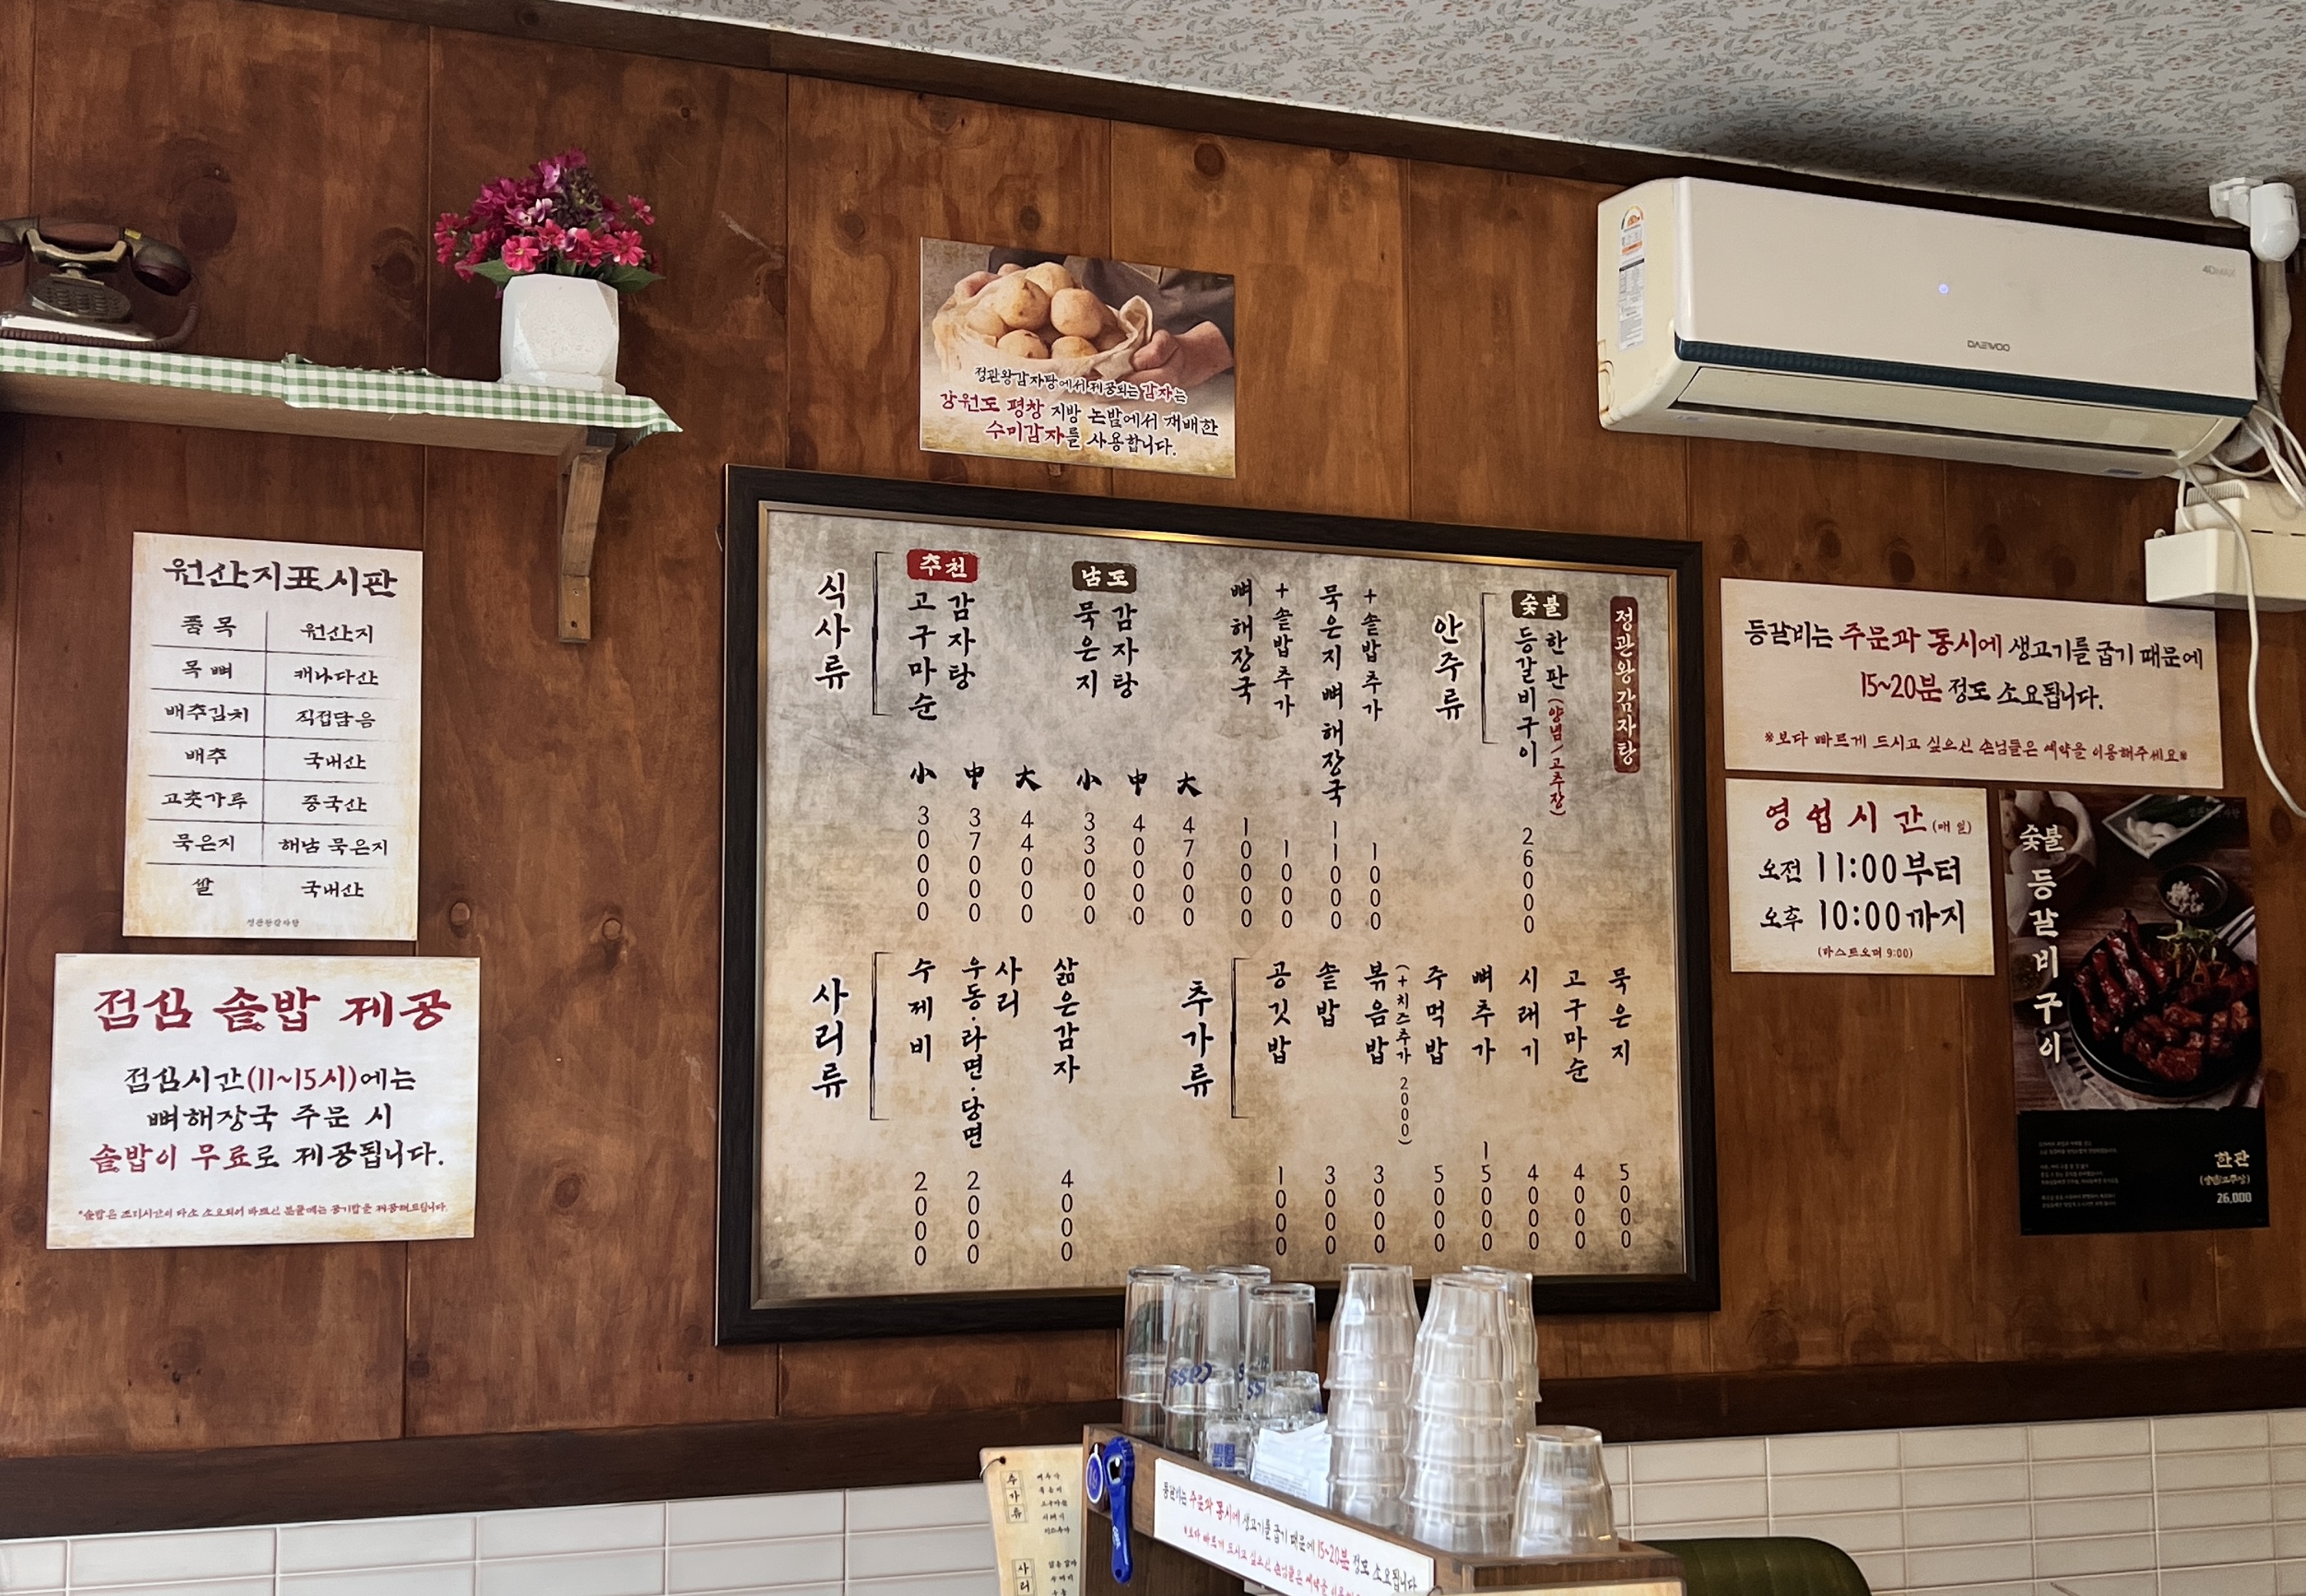 정관왕감자탕에서 제공되는 감자는
강원도 평창 지방 논밭에서 재배한
수미감자를 사용합니다.
원산지표시판
품목 원산지
목뼈 캐나다산
배추김치 직접담음
배추 국내산
고춧가루 중국산
묵은지 해남 묵은지
쌀 국내산
정관왕감자탕
점심 솥밥 제공
점심시간(11~15시)에는
뼈해장국 주문 시
솥밥이 무료로 제공됩니다.
*솥밥은 조리시간이 다소 소요되어 바쁘신 분들에는 공기밥을 제공해드립니다.
식사류
추천
고구마순 감자탕
小 30000
中 37000
大 44000
남도
묵은지 감자탕
小 33000
中 40000
大 47000
뼈해장국 10000
+솥밥추가 1000
묵은지 뼈해장국 11000
+솥밥추가 1000
안주류
숯불
등갈비구이 한판 (양념/고추장) 26000
정관왕감자탕
사리류
수제비 2000
우동·라면·당면 사리 2000
삶은감자 4000
추가류
공깃밥 1000
솥밥 3000
볶음밥 3000
(+치즈추가 2000)
주먹밥 5000
뼈추가 15000
시래기 4000
고구마순 4000
묵은지 5000
등갈비는 주문과 동시에 생고기를 굽기 때문에
15~20분 정도 소요됩니다.
*보다 빠르게 드시고 싶으신 손님들은 예약을 이용해주세요*
영업시간 (매일)
오전 11:00부터
오후 10:00까지
(라스트오더 9:00)
숯불
등갈비구이
한판
(양념/고추장)
26,000
4DMAX
DAEWOO
Cass
추가류
뼈추가
묵은지
고구마순
시래기
사리
등갈비는 주문과 동시에 생고기를 굽기 때문에 15~20분 정도 소요됩니다
*보다 빠르게 드시고 싶으신 손님들은 예약을